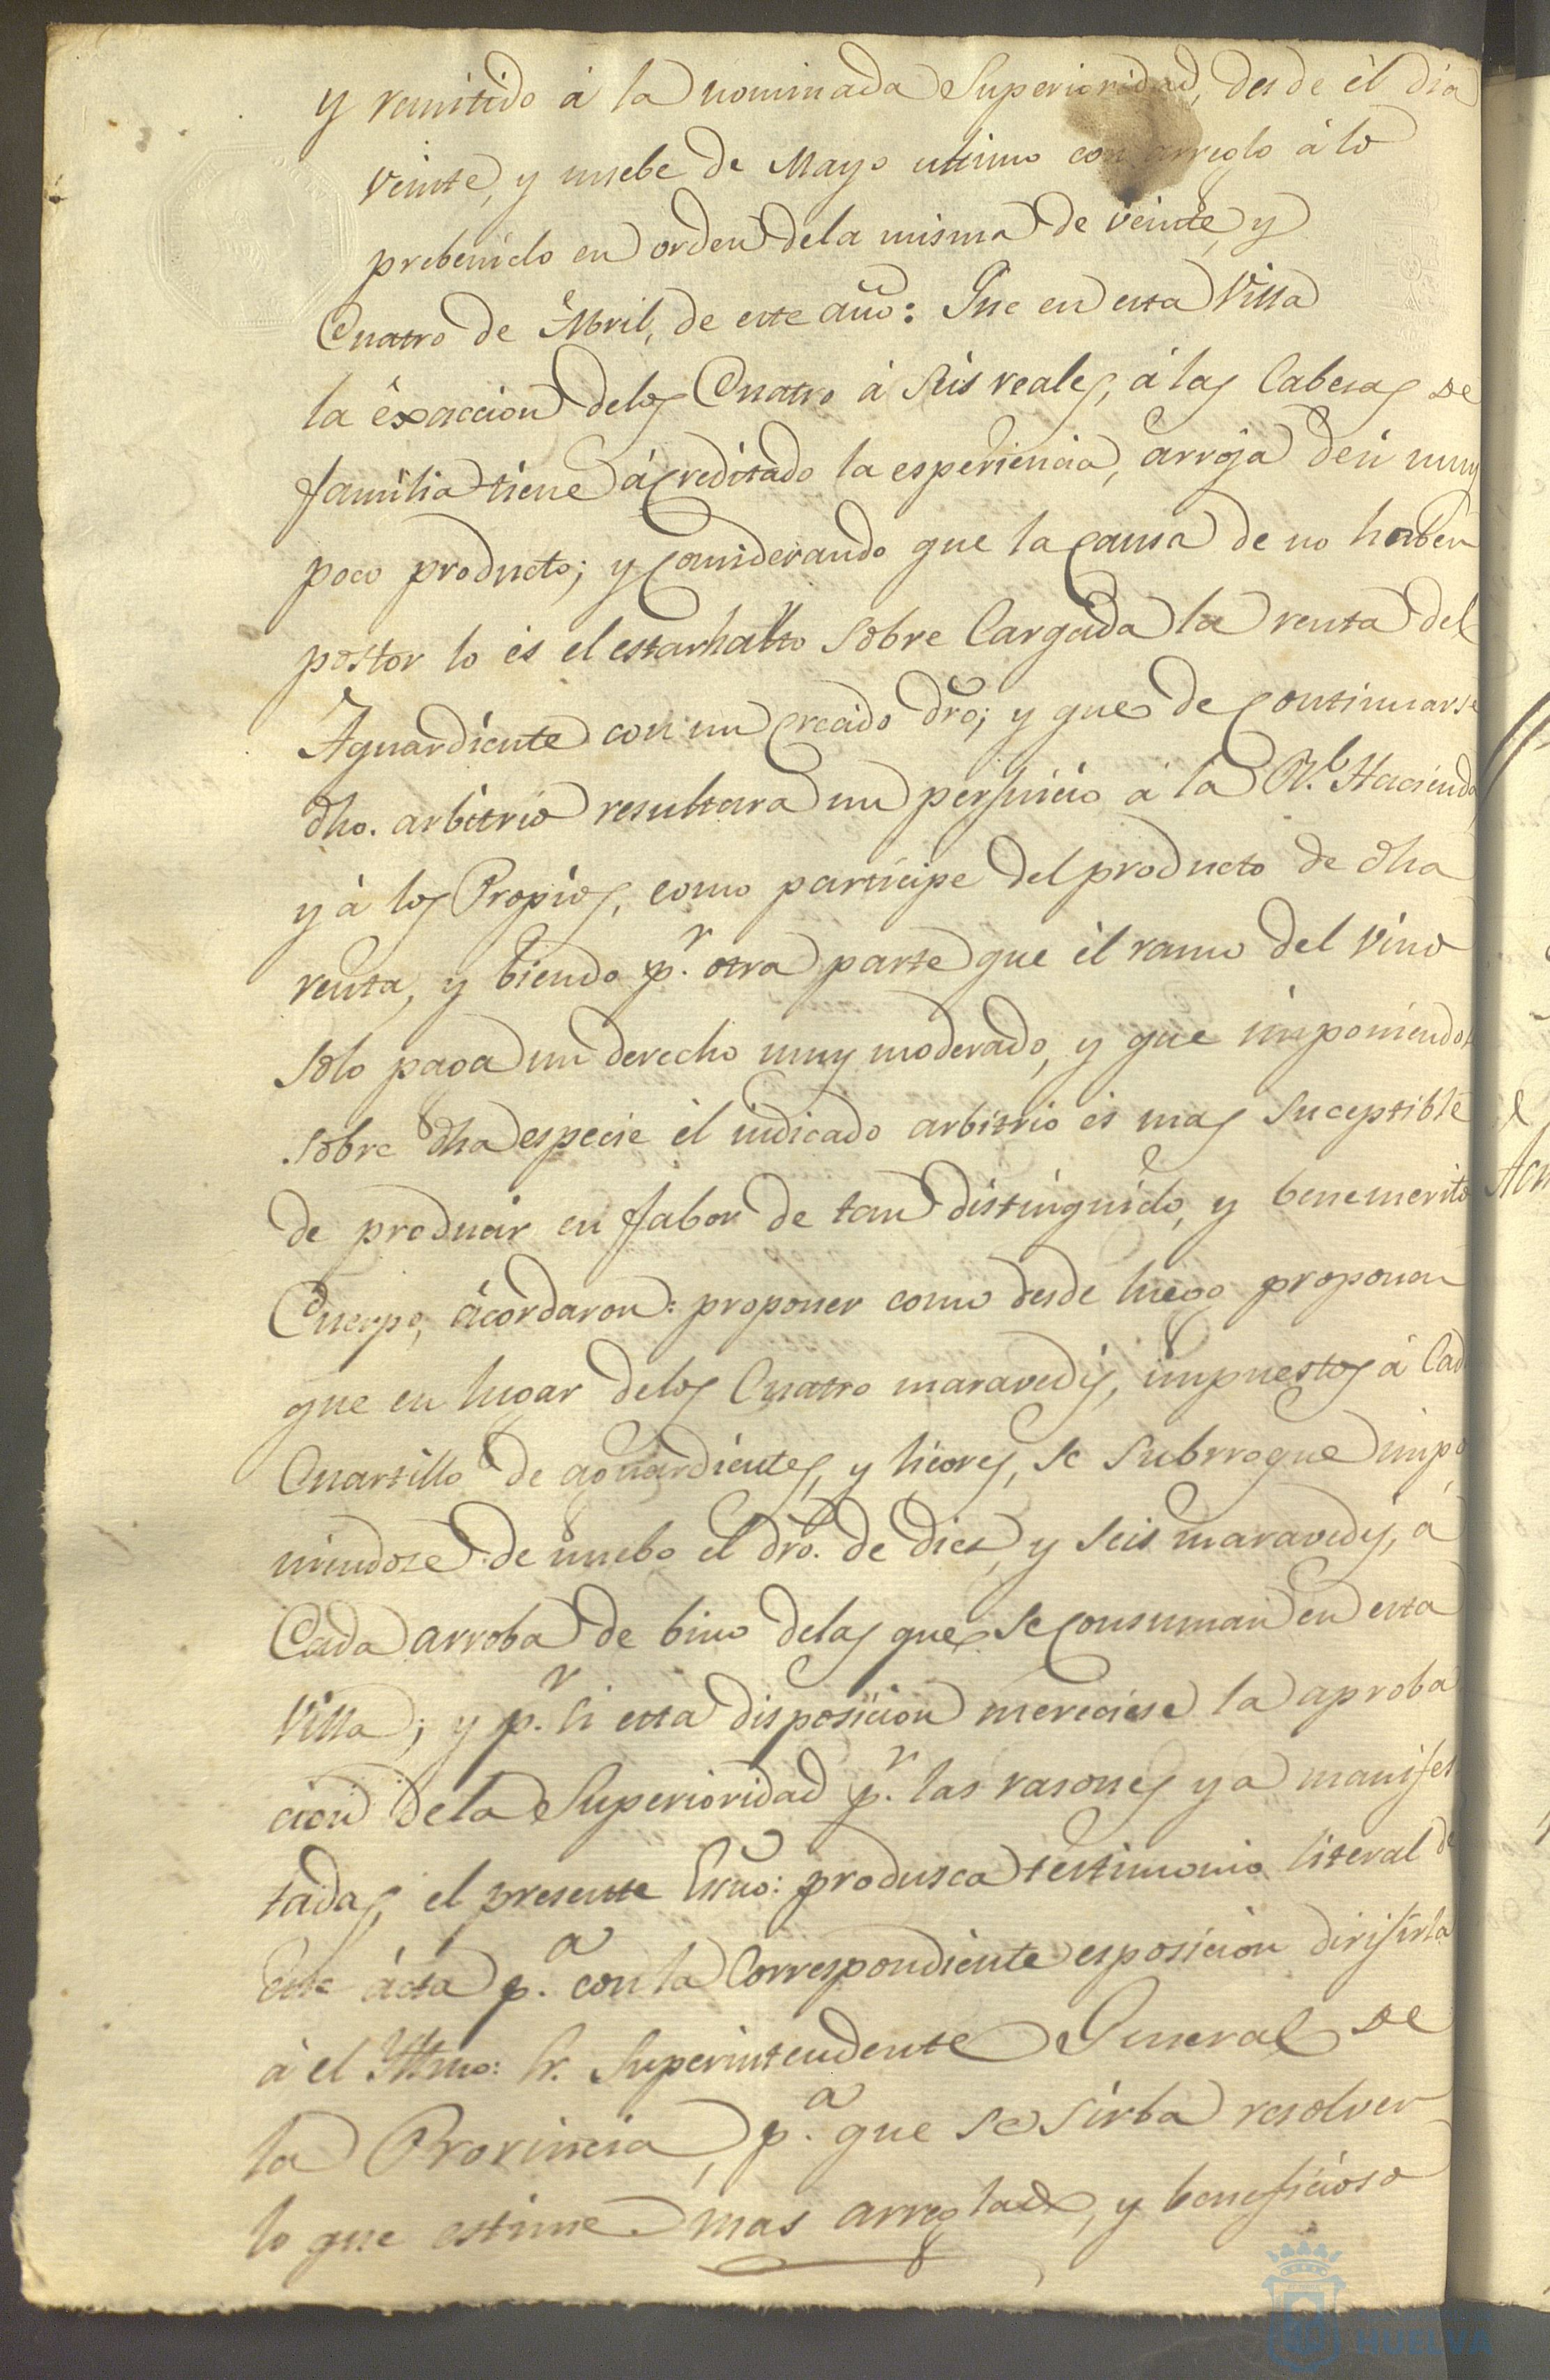 y remitido á la nominada Superioridad, desde él dia
veinte, y nuebe de Mayo ultimo con arreglo á lo
prebenido en orden dela misma de veinte, y
Cuatro de Abril, de este año: Que en esta Villa
la éxaccion delos Cuatro á Seis reales, á las Cabesas de
familia tiene ácreditado la esperiencia, arroja den muy
poco producto; y Considerando que la Causa de no haber
postor lo es el estar halto Sobre Cargada la renta del
Aguardiente con un Crecido dro; y que de Continuarse
dho. arbitrio resultara un perjuicio á la Rl. Hacienda
y á los Propios, como participe del producto de dha
renta, y biendo pr. otra parte que él ramo del Vino
Solo paga un derecho muy moderado, y que imponiendo
Sobre dha especie él indicado arbitrio és mas Suceptible
de producir en fabor de tan distinguido, y benemerito
Cuerpo, ácordaron: proponer como desde luego proponen
que en lugar delos Cuatro maravedis, impuestos á Cad
Cuartillo de aguardientes, y licores, se Subrrogue impo
niendose de nuebo el dro. de dies, y Seis maravedis, á
Cada arroba de bino delas que se Consuman en esta
Villa; y pr. si esta disposicion mereciese la aproba
cion dela Superioridad pr. las rasones ya manifes
tadas, el presente Esno: produsca testimonio literal de
este ácta pa. con la Correspondiente esposicion dirijirla
á el Yltmo: Sr. Superintendente General de
la Provincia, pa. que se sirba resolver
lo que estime mas arreglado, y beneficioso
HUELVA